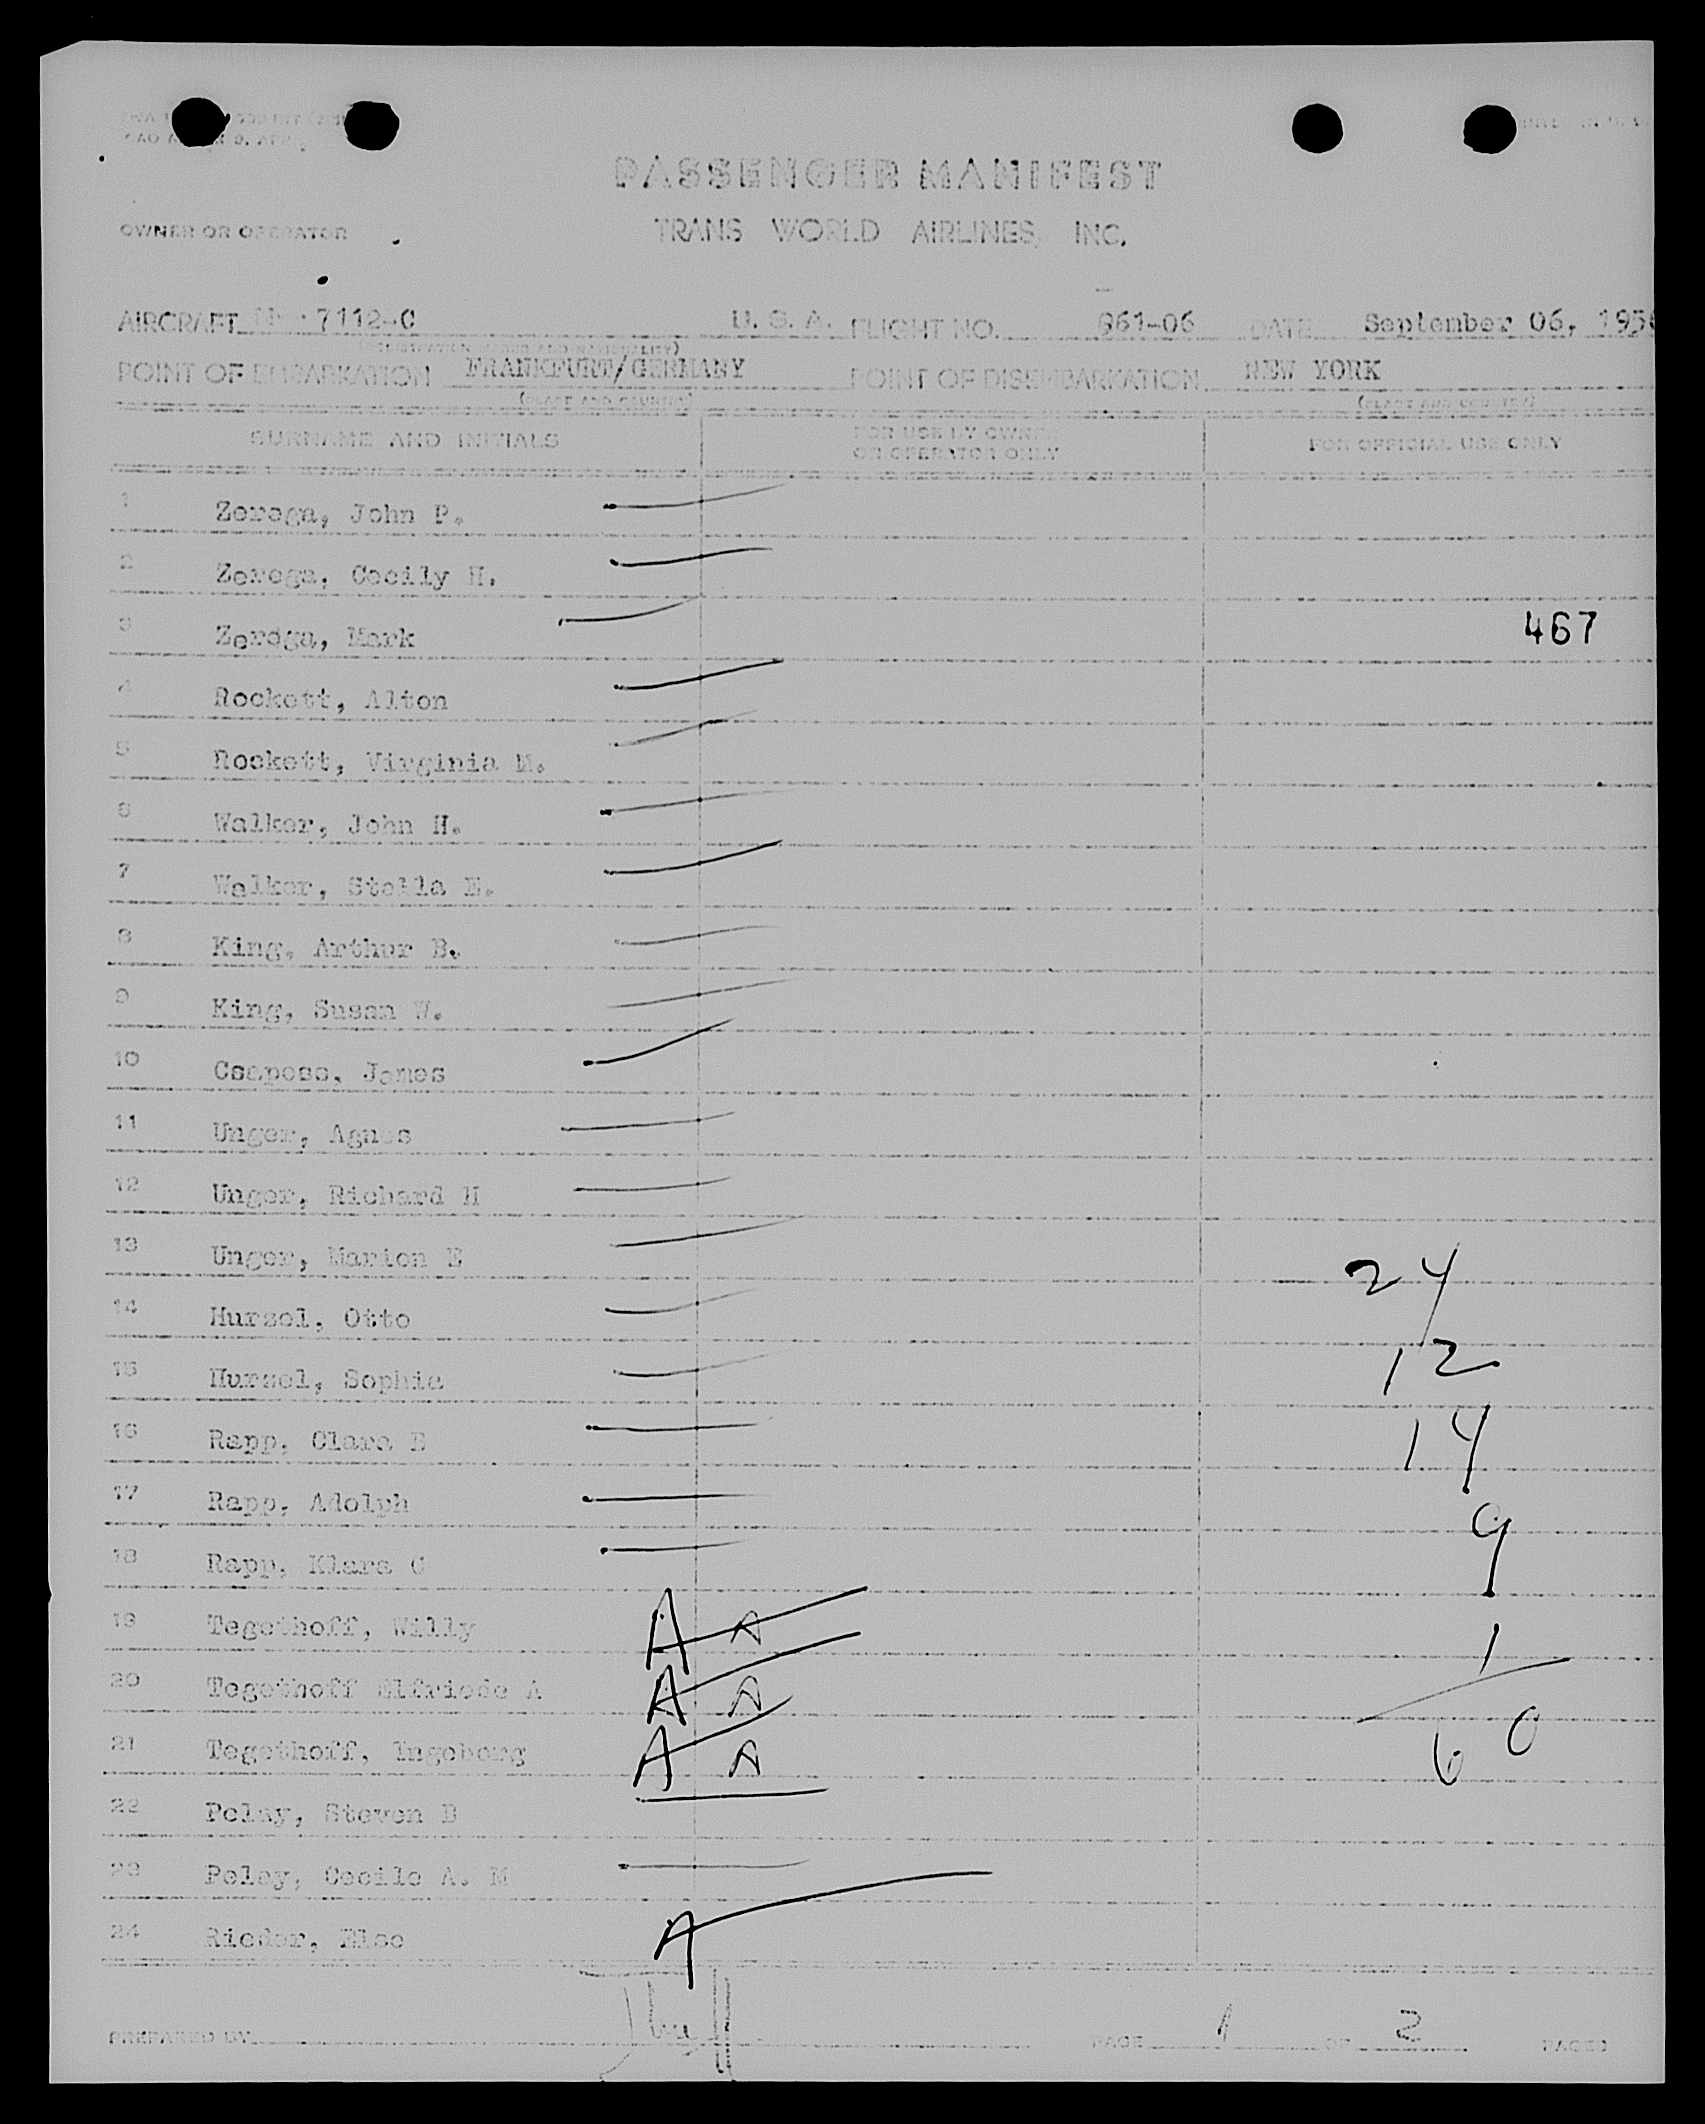 PASSENGER MANIFEST
OWNER OR OPERATOR TRANS WORLD AIRLINES, INC.
AIRCRAFT 7112-C U. S. A. FLIGHT NO. 961-06 DATE September 06, 195
POINT OF EMBARKATION FRANKFURT/GERMANY POINT OF DISEMBARKATION NEW YORK
(PLACE AND COUNTRY) (PLACE AND COUNTRY)
SURNAME AND INITIALS FOR USE BY OWNER OR OPERATOR ONLY FOR OFFICIAL USE ONLY
1 Zerega, John P.
2 Zerega, Cecily H.
3 Zerega, Mark 467
4 Rockett, Alton
5 Rockett, Virginia M.
6 Walker, John H.
7 Walker, Stella E.
8 King, Arthur B.
9 King, Susan W.
10 James
11 Unger, Agnes
12 Unger, Richard H
13 Unger, Marion E 24
14 Hurzel, Otto
15 Hurzel, Sophie 12
16 Rapp, Clara E 14
17 Rapp, Adolph 9
18 Rapp, Klara C
19 Tegethoff, Willy A A 1
20 Tegethoff Elfriede A A A
21 Tegethoff, Ingeborg A A 60
22 Steven B
23 Cecile A. M
24 Rieder, Else A
PREPARED BY PAGE 1 OF 2 PAGES